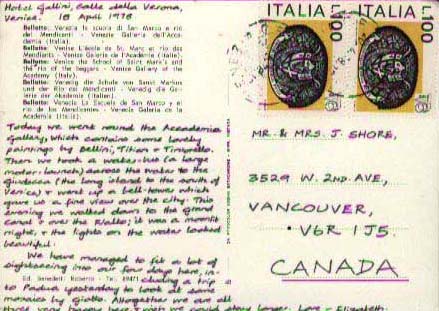 Hotel Gallini, Calle della Verona,
Venice. 18 April 1978
Bellotto: Venezia la scuola di San Marco e rio
dei Mendicanti - Venezia Gallerie dell'Acca-
demia (Italia).
Bellotto: Venise L'école de St. Marc et rio des
Mendiants - Venise Galerie de l'Académie (Italie).
Bellotto: Venice the School of Saint Mark's and
the rio of the beggars - Venice Gallery of the
Academy (Italy).
Bellotto: Venedig die Schule von Sankt Markus
und der Rio dei Mendicanti - Venedig die Ga-
lerie der Akademie (Italien).
Bellotto: Venecia La Escuela de San Marco y el
rio de los Mendicantes - Venecia Galeria de la
Academia (Italia).
Today we went round the Accademia
Gallery, which contains some lovely
paintings by Bellini, Titian & Tintoretto.
Then we took a water-bus (a large
motor-launch) across the water to the
Giudecca (the long island to the south of
Venice) & went up a bell-tower which
gave us a fine view over the city. This
evening we walked down to the grand
canal & over the Rialto; it was a moonlit
night, & the lights on the water looked
beautiful.
We have managed to fit a lot of
sightseeing into our four days here, in-
Ed. Benedetti Roberto - Tel.
cluding a trip
to Padua yesterday to look at some
mosaics by Giotto. Altogether we are all
three very happy here & wish we could stay longer. Love - Elizabeth.
ITALIA
L.100
ITALIA
L.100
MR. & MRS. J. SHORE,
3529 W. 2ND. AVE,
VANCOUVER,
V6R 1J5.
CANADA